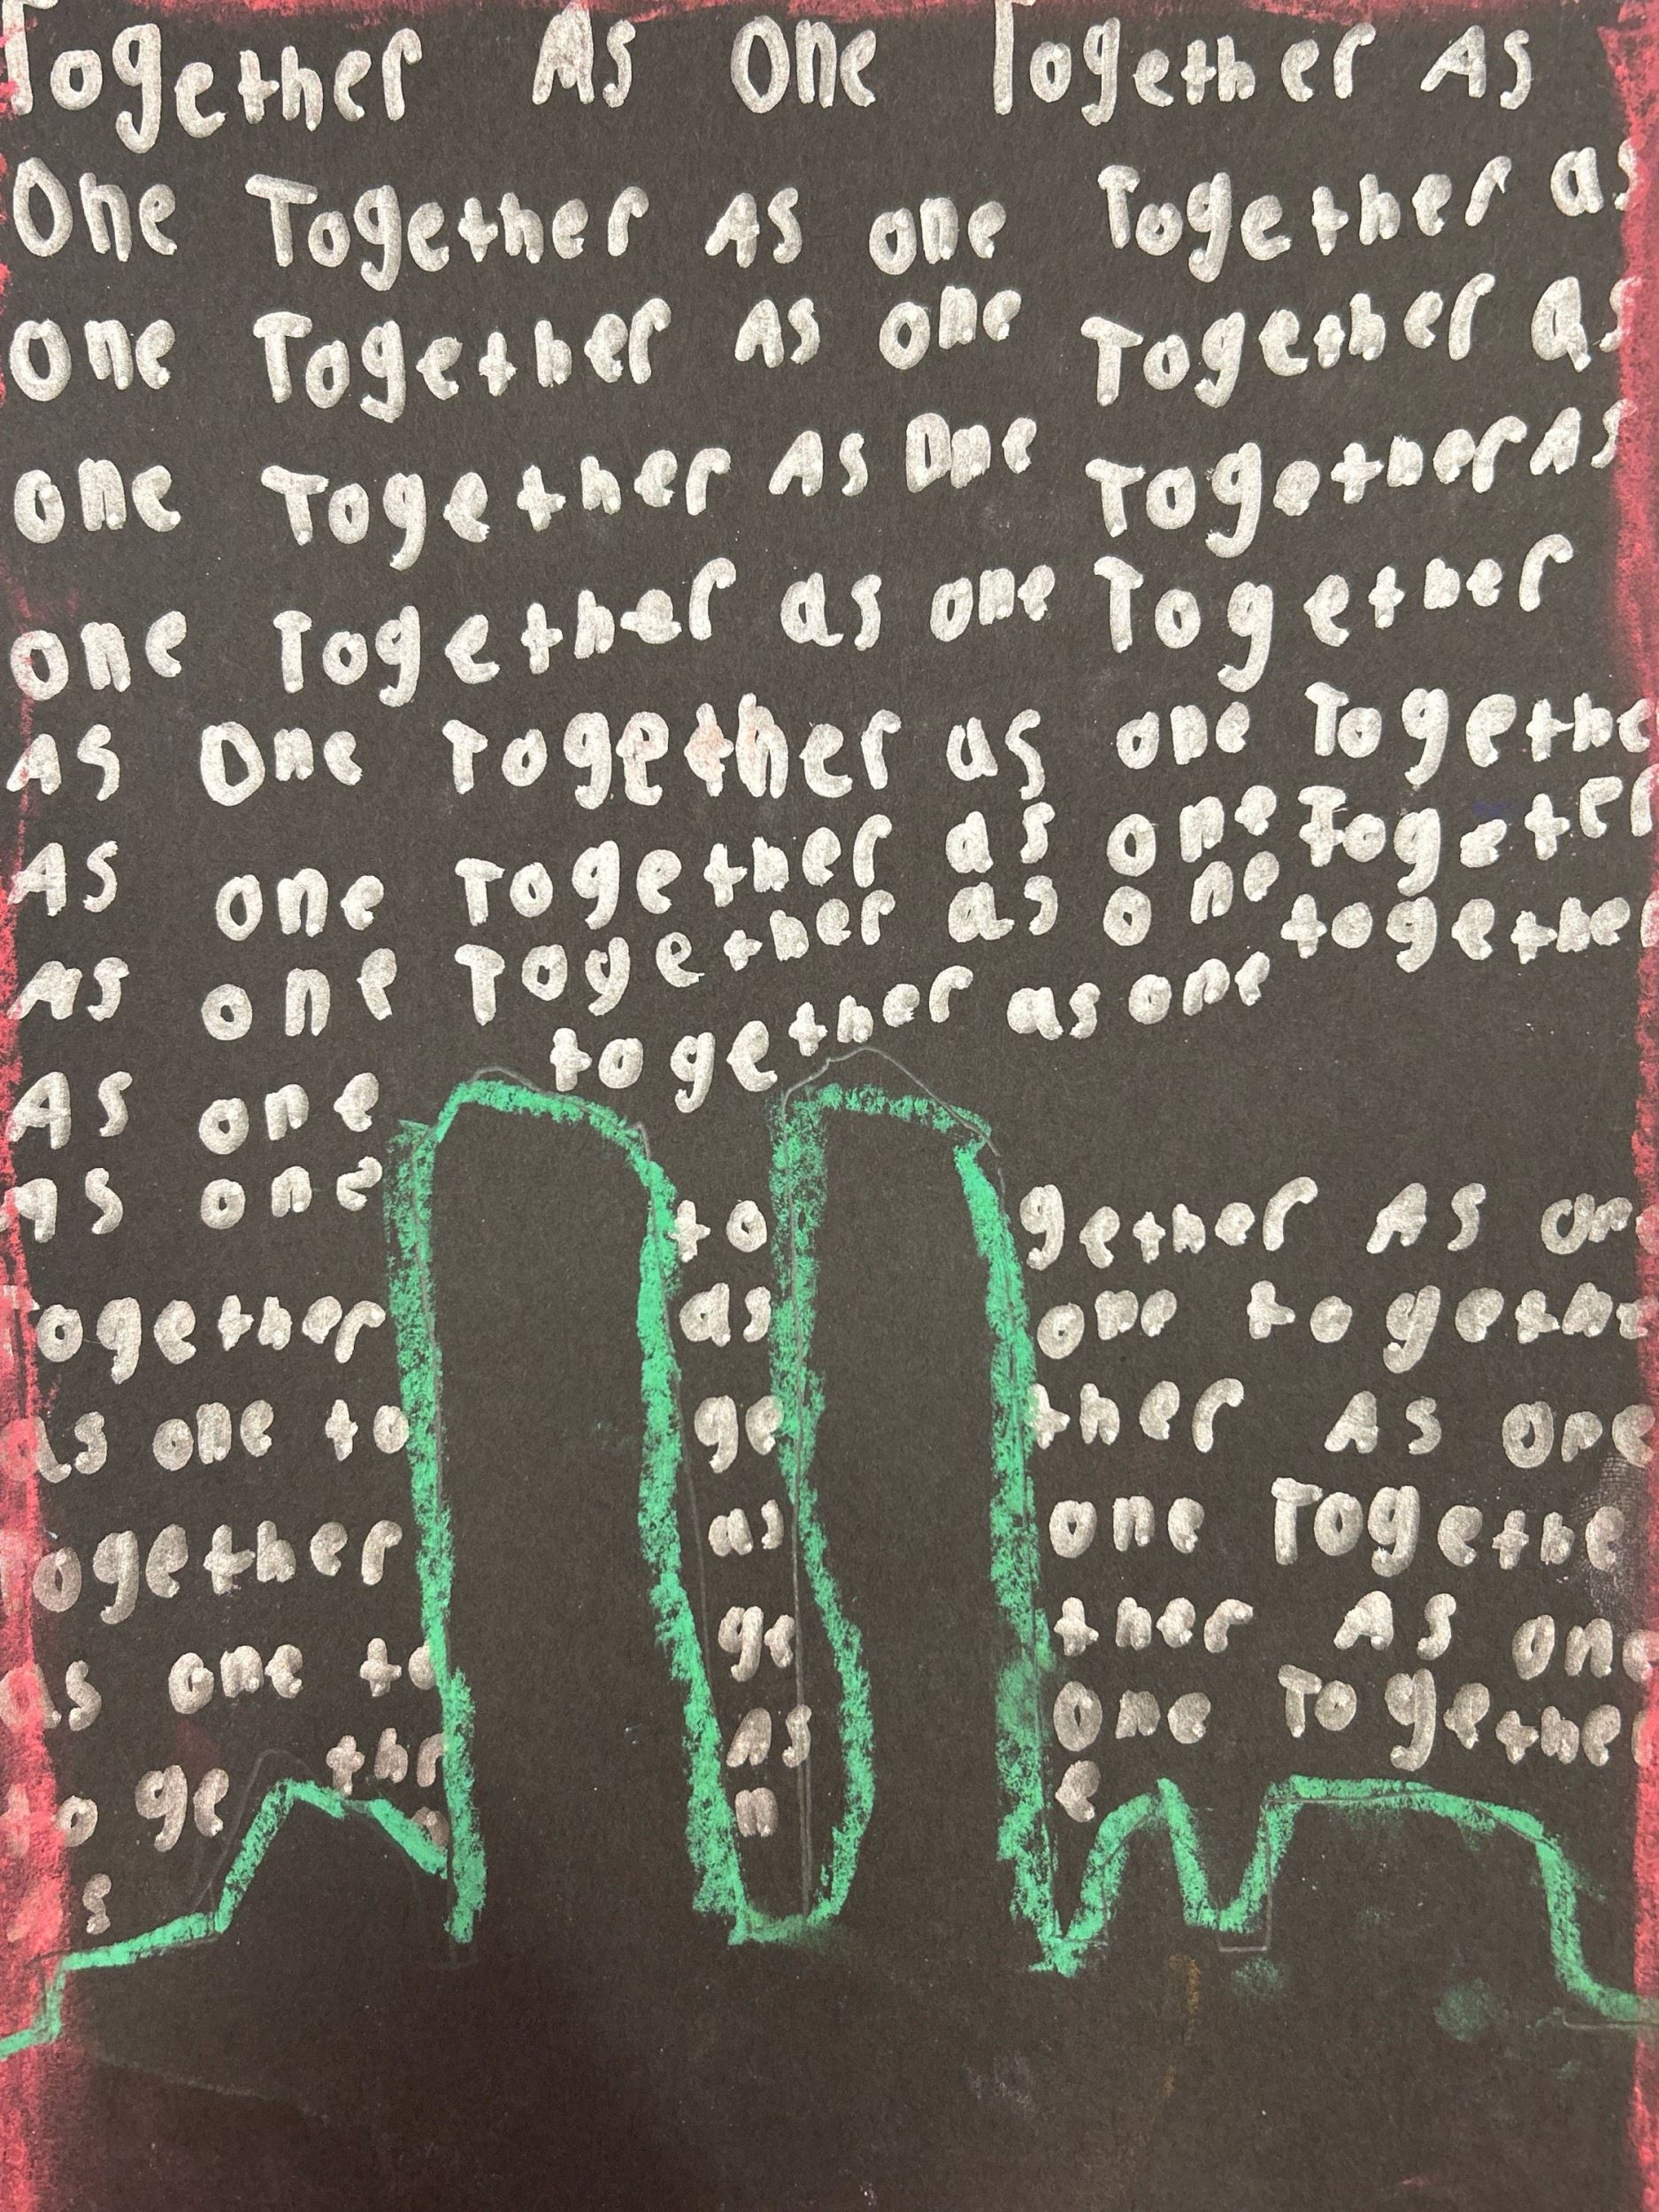 Together As One Together As
One Together As one Together as
One Together As one Together as
one Together As One Together As
one Together as one Together
As One Together as one Togethe
As one Together as one Togeter
As one Together as one together
together as one
As one
as one to gether As one
Together as one togethe
as one to ge ther As one
Together as one Togethe
as one to ge ther As one
As one Togethe
to ge thr n e
s